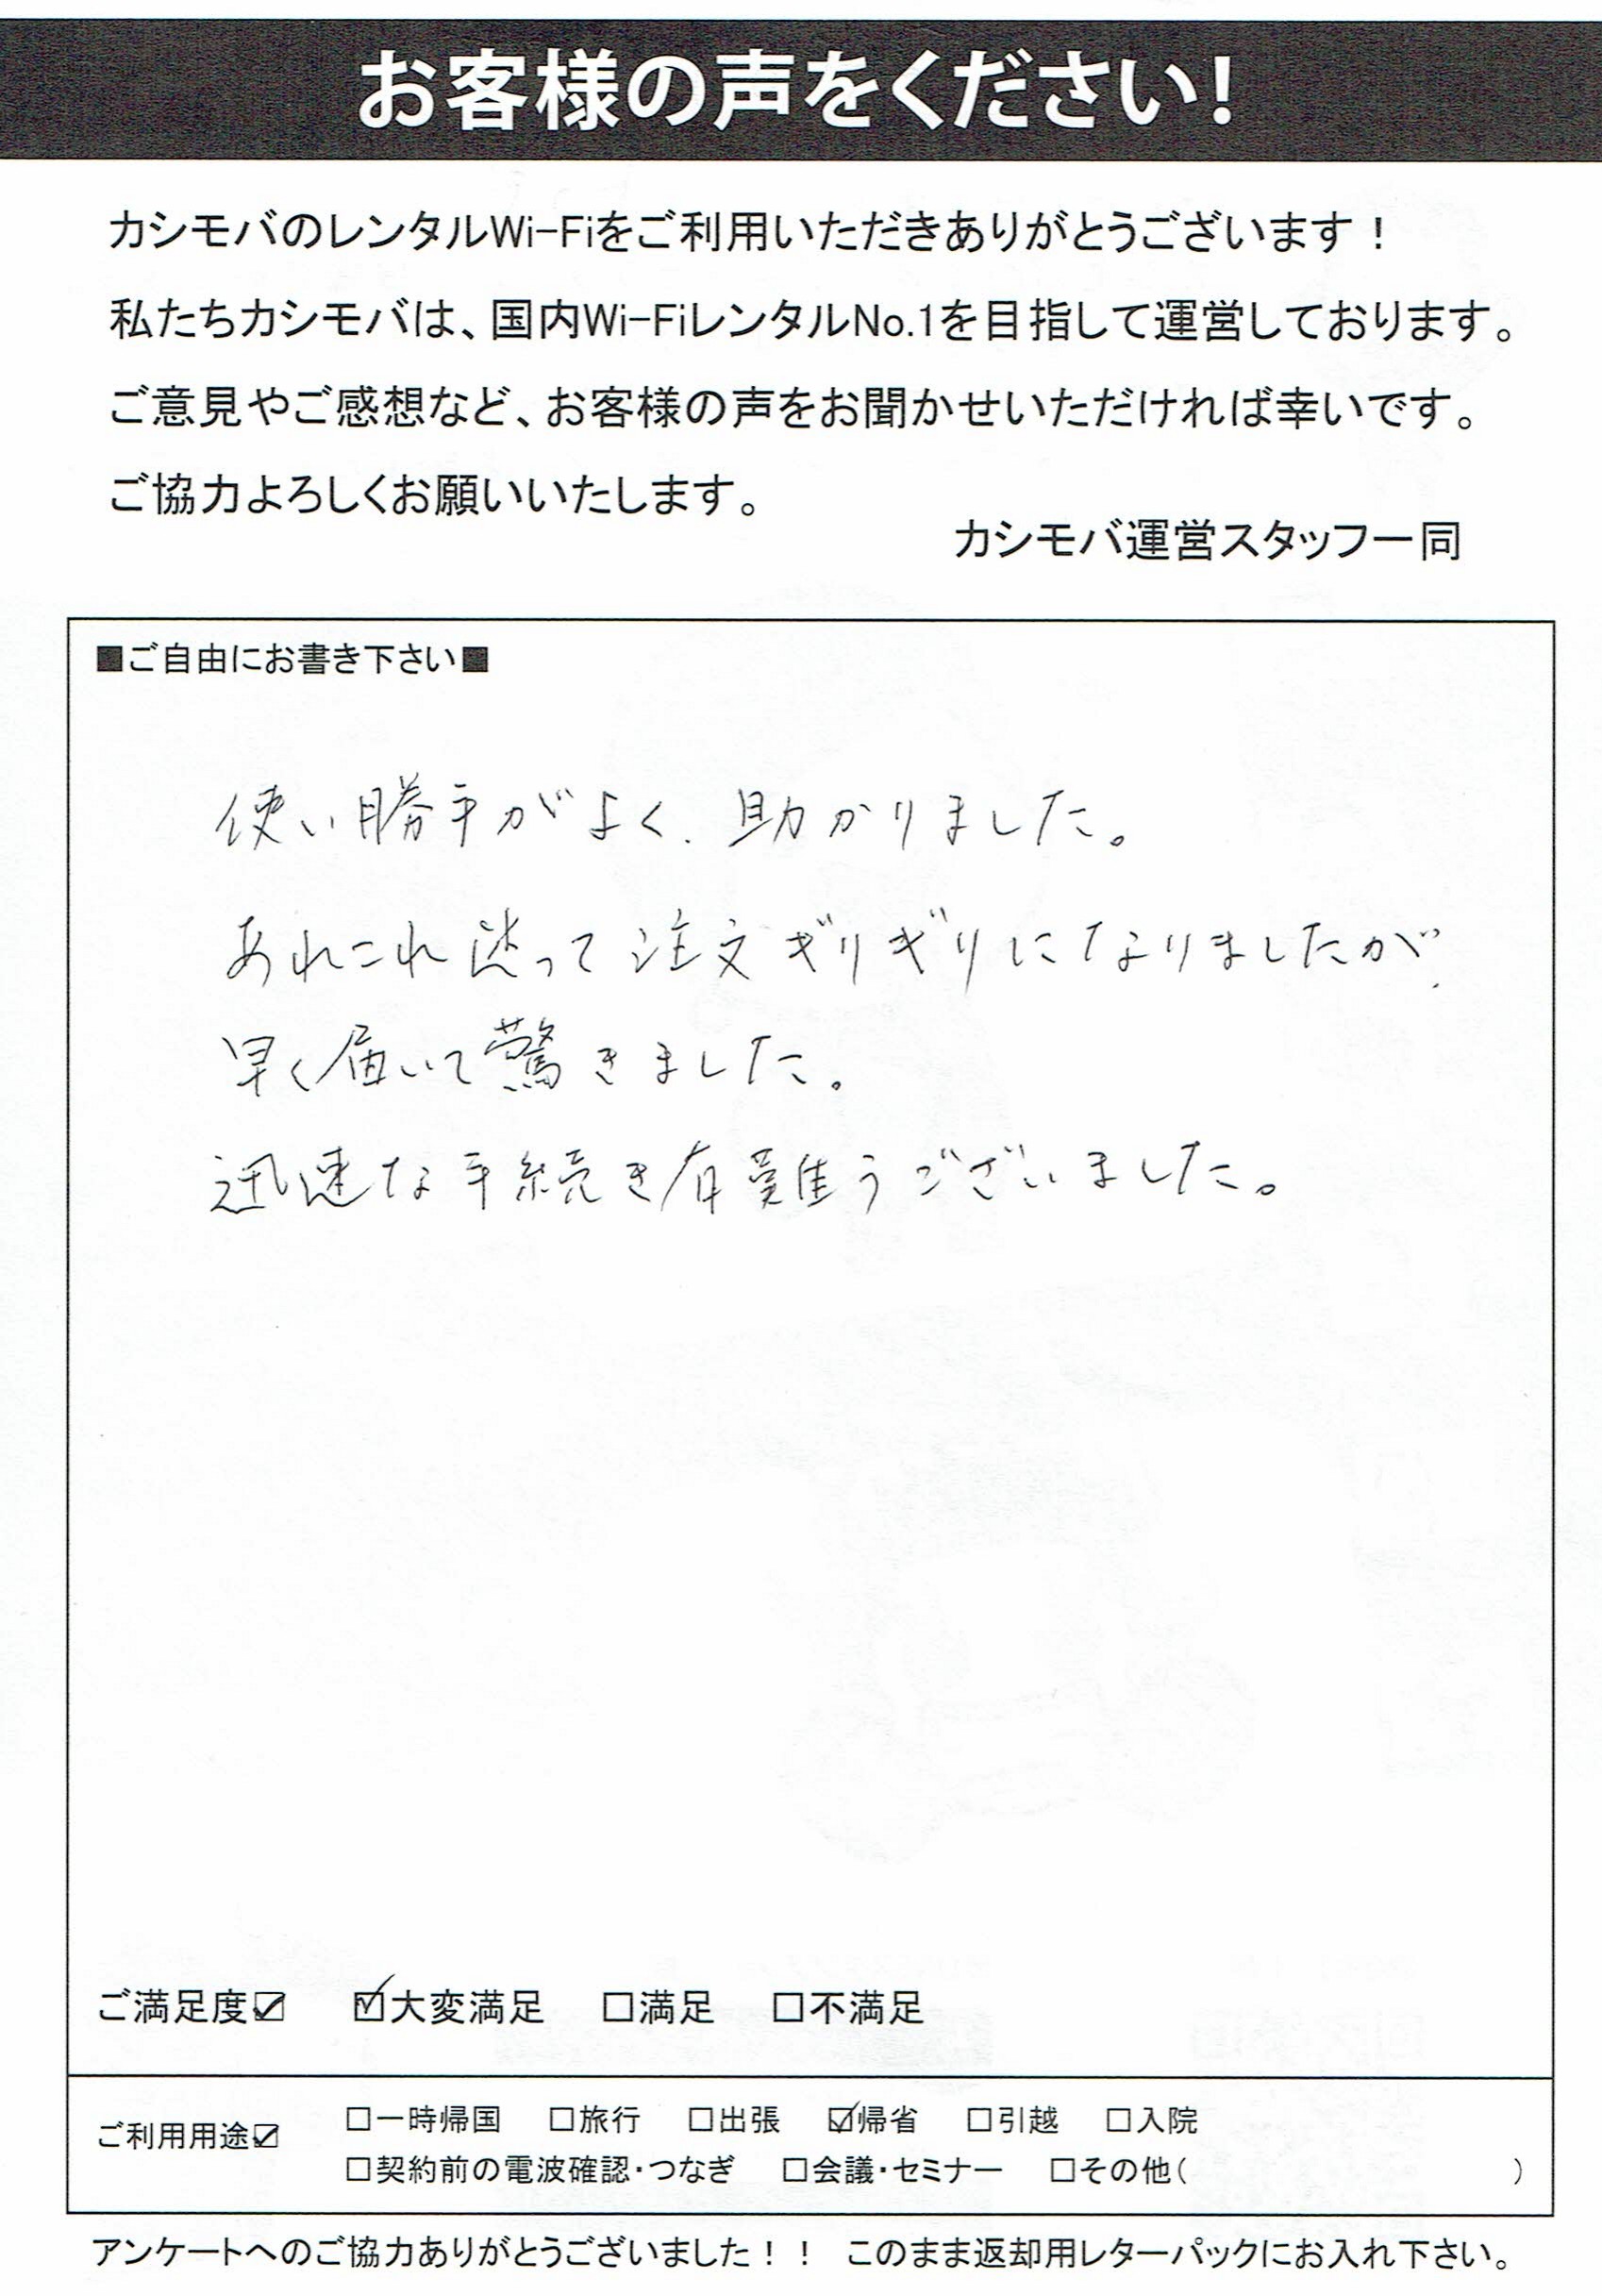 お客様の声をください!
カシモバのレンタルWi-Fiをご利用いただきありがとうございます！
私たちカシモバは、国内Wi-FiレンタルNo.1を目指して運営しております。
ご意見やご感想など、お客様の声をお聞かせいただければ幸いです。
ご協力よろしくお願いいたします。
カシモバ運営スタッフ一同
■ご自由にお書き下さい■
使い勝手がよく、助かりました。
あれこれ迷って注文ギリギリになりましたが、
早く届いて驚きました。
迅速な手続き有難うございました。
ご満足度☑ ☑大変満足 □満足 □不満足
ご利用用途☑ □一時帰国 □旅行 □出張 ☑帰省 □引越 □入院
□契約前の電波確認・つなぎ □会議・セミナー □その他( )
アンケートへのご協力ありがとうございました！！ このまま返却用レターパックにお入れ下さい。